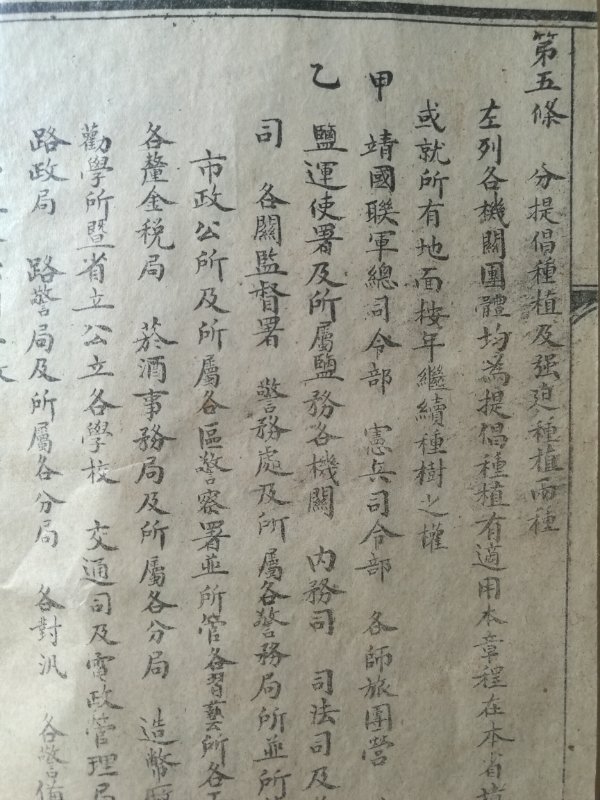 第五條　分提倡種植及强迫種植兩種
左列各機關團體均為提倡種植有適用本章程在本省
或就所有地面按年繼續種樹之權
甲　靖國聯軍總司令部　憲兵司令部　各師旅團營
乙　鹽運使署及所屬鹽務各機關　內務司　司法司及
司　各關監督署　警務處及所屬各警務局所並所
市政公所及所屬各區警察署並所管各習藝所各
各釐金稅局　菸酒事務局及所屬各分局　造幣
勸學所暨省立公立各學校　交通司及電政管理局
路政局　路警局及所屬各分局　各對汛　各警備